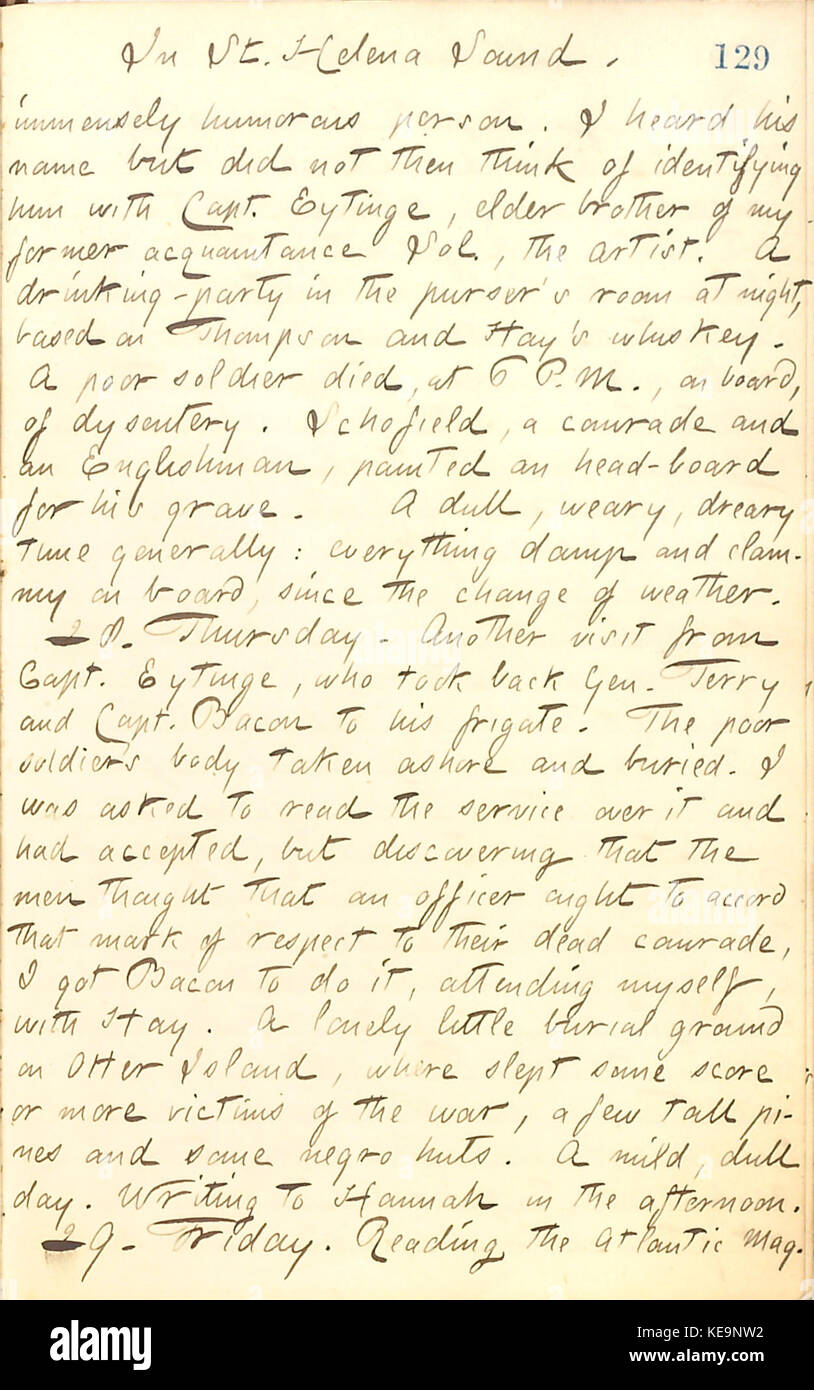 In St. Helena Sound.
129
immensely humorous person. I heard his
name but did not then think of identifying
him with Capt. Eytinge, elder brother of my
former acquaintance Sol., the artist. A
drinking-party in the purser's room at night,
based on Thompson and Hay's whiskey.
A poor soldier died, at 6 P.M., on board,
of dysentery. Schofield, a comrade and
an Englishman, painted an head-board
for his grave. A dull, weary, dreary
time generally: everything damp and clam-
my on board, since the change of weather.
28. Thursday. Another visit from
Capt. Eytinge, who took back Gen. Terry
and Capt. Bacon to his frigate. The poor
soldier's body taken ashore and buried. I
was asked to read the service over it and
had accepted, but discovering that the
men thought that an officer ought to accord
that mark of respect to their dead comrade,
I got Bacon to do it, attending myself,
with Hay. A lonely little burial ground
on Otter Island, where slept some score
or more victims of the war, a few tall pi-
nes and some negro huts. A mild, dull
day. Writing to Hannah in the afternoon.
29. Friday. Reading the Atlantic Mag.
alamy
Image ID: KE9NW2
www.alamy.com